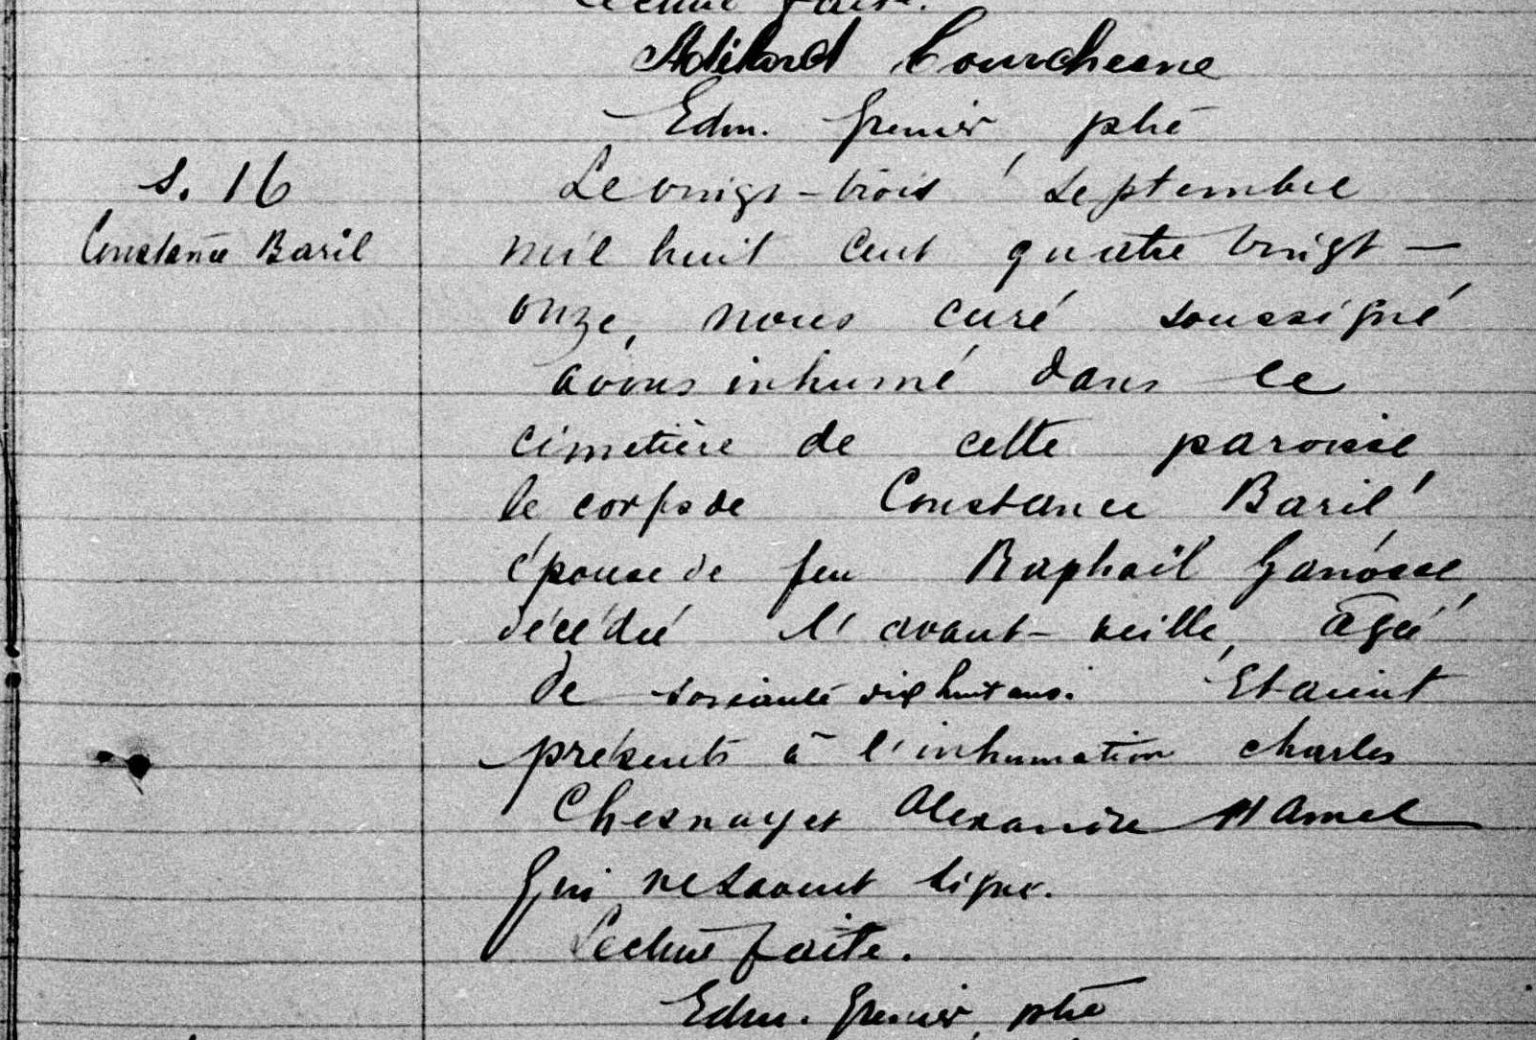 Lecture faite.
Adélard Courchesne
Edm. Grenier, ptre
S. 16
Constance Baril
Le vingt-trois septembre
mil huit cent quatre vingt-
onze, nous curé soussigné
avons inhumé dans le
cimetière de cette paroisse,
le corps de Constance Baril,
épouse de feu Raphaël
décédée l'avant-veille, âgée
de soixante dix huit ans. Etaient
présents à l'inhumation Charles
Chesnay et Alexandre Hamel
qui ne savent signer.
Lecture faite.
Edm. Grenier, ptre